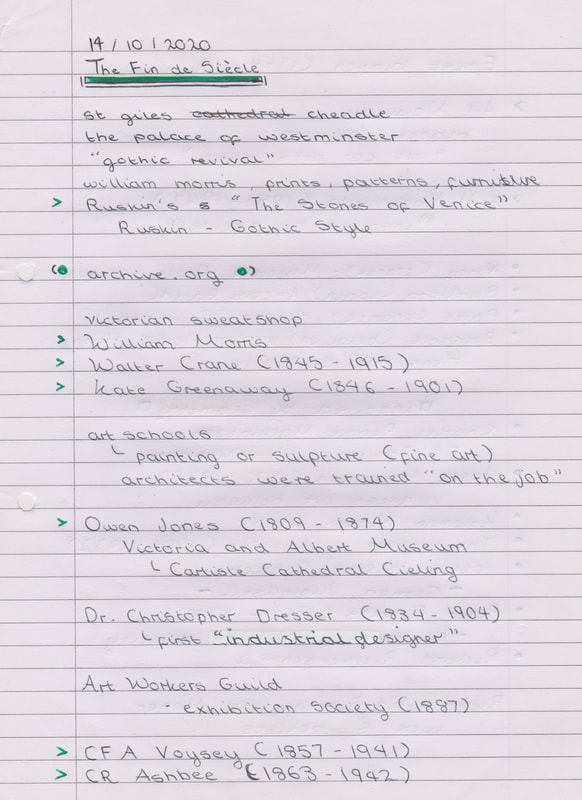 14/10/2020
The Fin de Siècle
st giles cathedral cheadle
the palace of westminster
"gothic revival"
william morris, prints, patterns, furniture
> Ruskin's s "The Stones of Venice"
Ruskin - Gothic Style
(● archive.org ●)
victorian sweatshop
> William Morris
> Walter Crane (1845 - 1915)
> Kate Greenaway (1846 - 1901)
art schools
└ painting or sulpture (fine art)
architects were trained "on the job"
> Owen Jones (1809 - 1874)
Victoria and Albert Museum
└ Carlisle Cathedral Cieling
Dr. Christopher Dresser (1834 - 1904)
└ first "industrial designer"
Art Workers Guild
- exhibition society (1887)
> CF A Voysey (1857 - 1941)
> CR Ashbee (1863 - 1942)